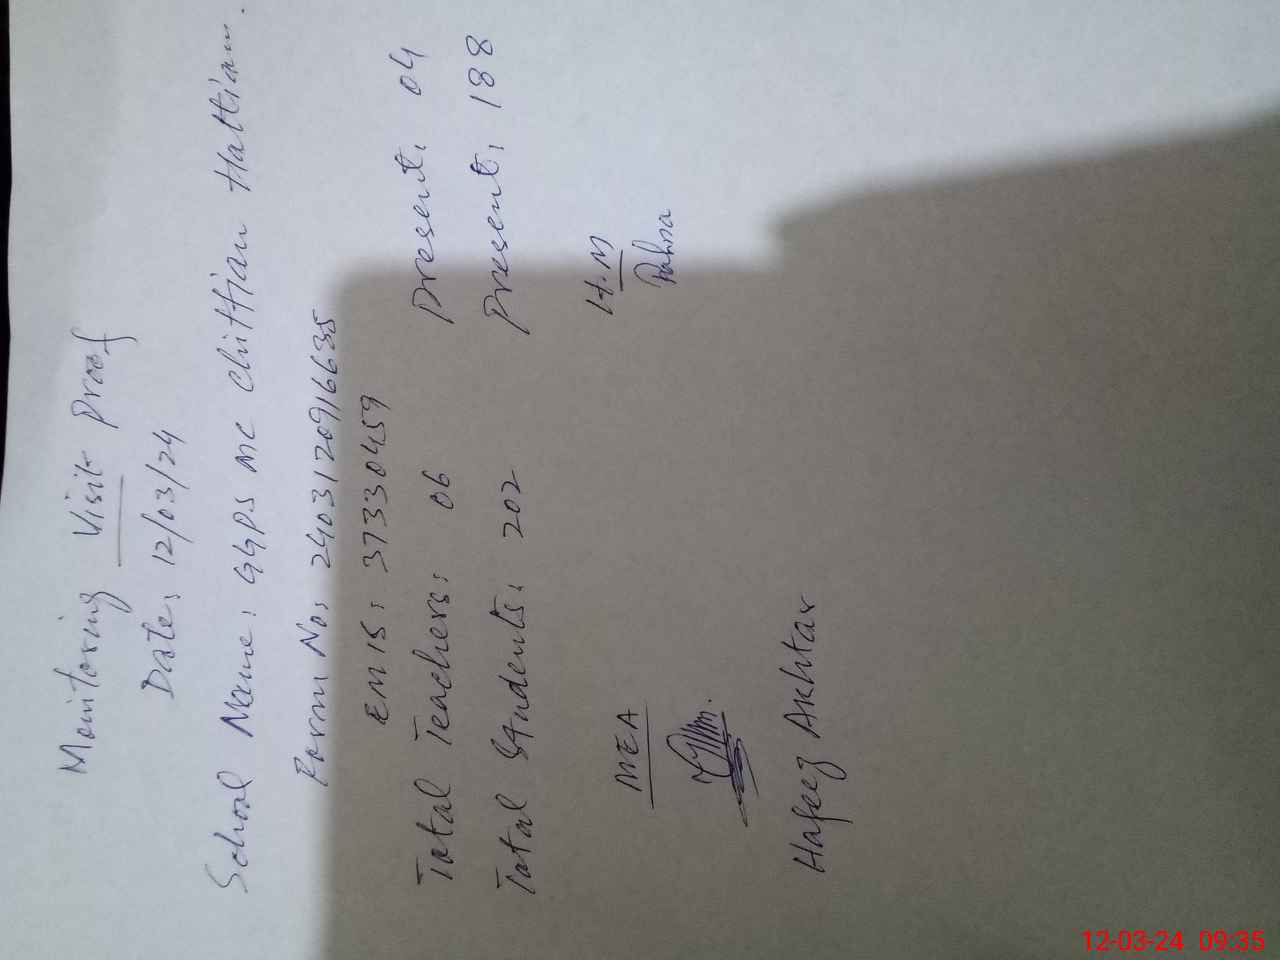 Monitoring Visit Proof
Date: 12/03/24
School Name: GGPS MC Chittian Hattian.
Form No: 2403120916635
EMIS: 37330459
Total Teachers: 06 Present: 04
Total Students: 202 Present: 188
MEA H.M
Hafeez Akhtar
12-03-24 09:35